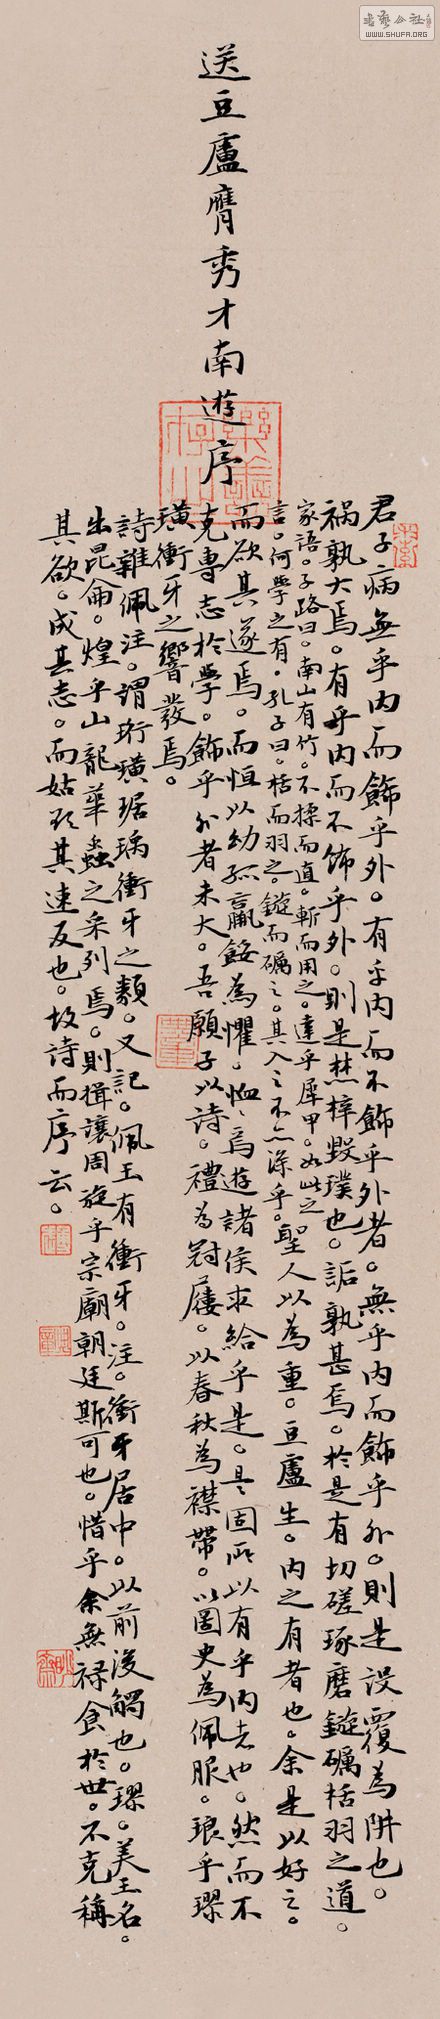 書藝公社
WWW.SHUFA.ORG
送豆盧膺秀才南遊序
君子病無乎內而飾乎外。有乎內而不飾乎外者。無乎內而飾乎外。則是設覆為阱也。
禍孰大焉。有乎內而不飾乎外。則是焚梓毀璞也。詬孰甚焉。於是有切磋琢磨鏃礪栝羽之道。
家語。子路曰。南山有竹。不揉而直。斬而用之。達乎犀甲。如此之
言。何學之有。孔子曰。栝而羽之。鏃而礪之。其入之不亦深乎。聖人以為重。豆盧生。內之有者也。余是以好之。
而欲其遂焉。而恒以幼孤羸餒為懼。恤々焉遊諸侯求給乎是。是固所以有乎內者也。然而不
克專志於學。飾乎外者未大。吾願子以詩。禮為冠屨。以春秋為襟帶。以圖史為佩服。琅乎璆
璜衝牙之響發焉。
詩雜佩注。謂珩璜琚瑀衝牙之類。又記。佩玉有衝牙。注。衝牙居中。以前後觸也。璆。美玉名。
出昆侖。煌乎山龍華蟲之采列焉。則揖讓周旋乎宗廟朝廷斯可也。惜乎余無祿食於世。不克稱
其欲。成其志。而姑欲其速反也。故詩而序云。